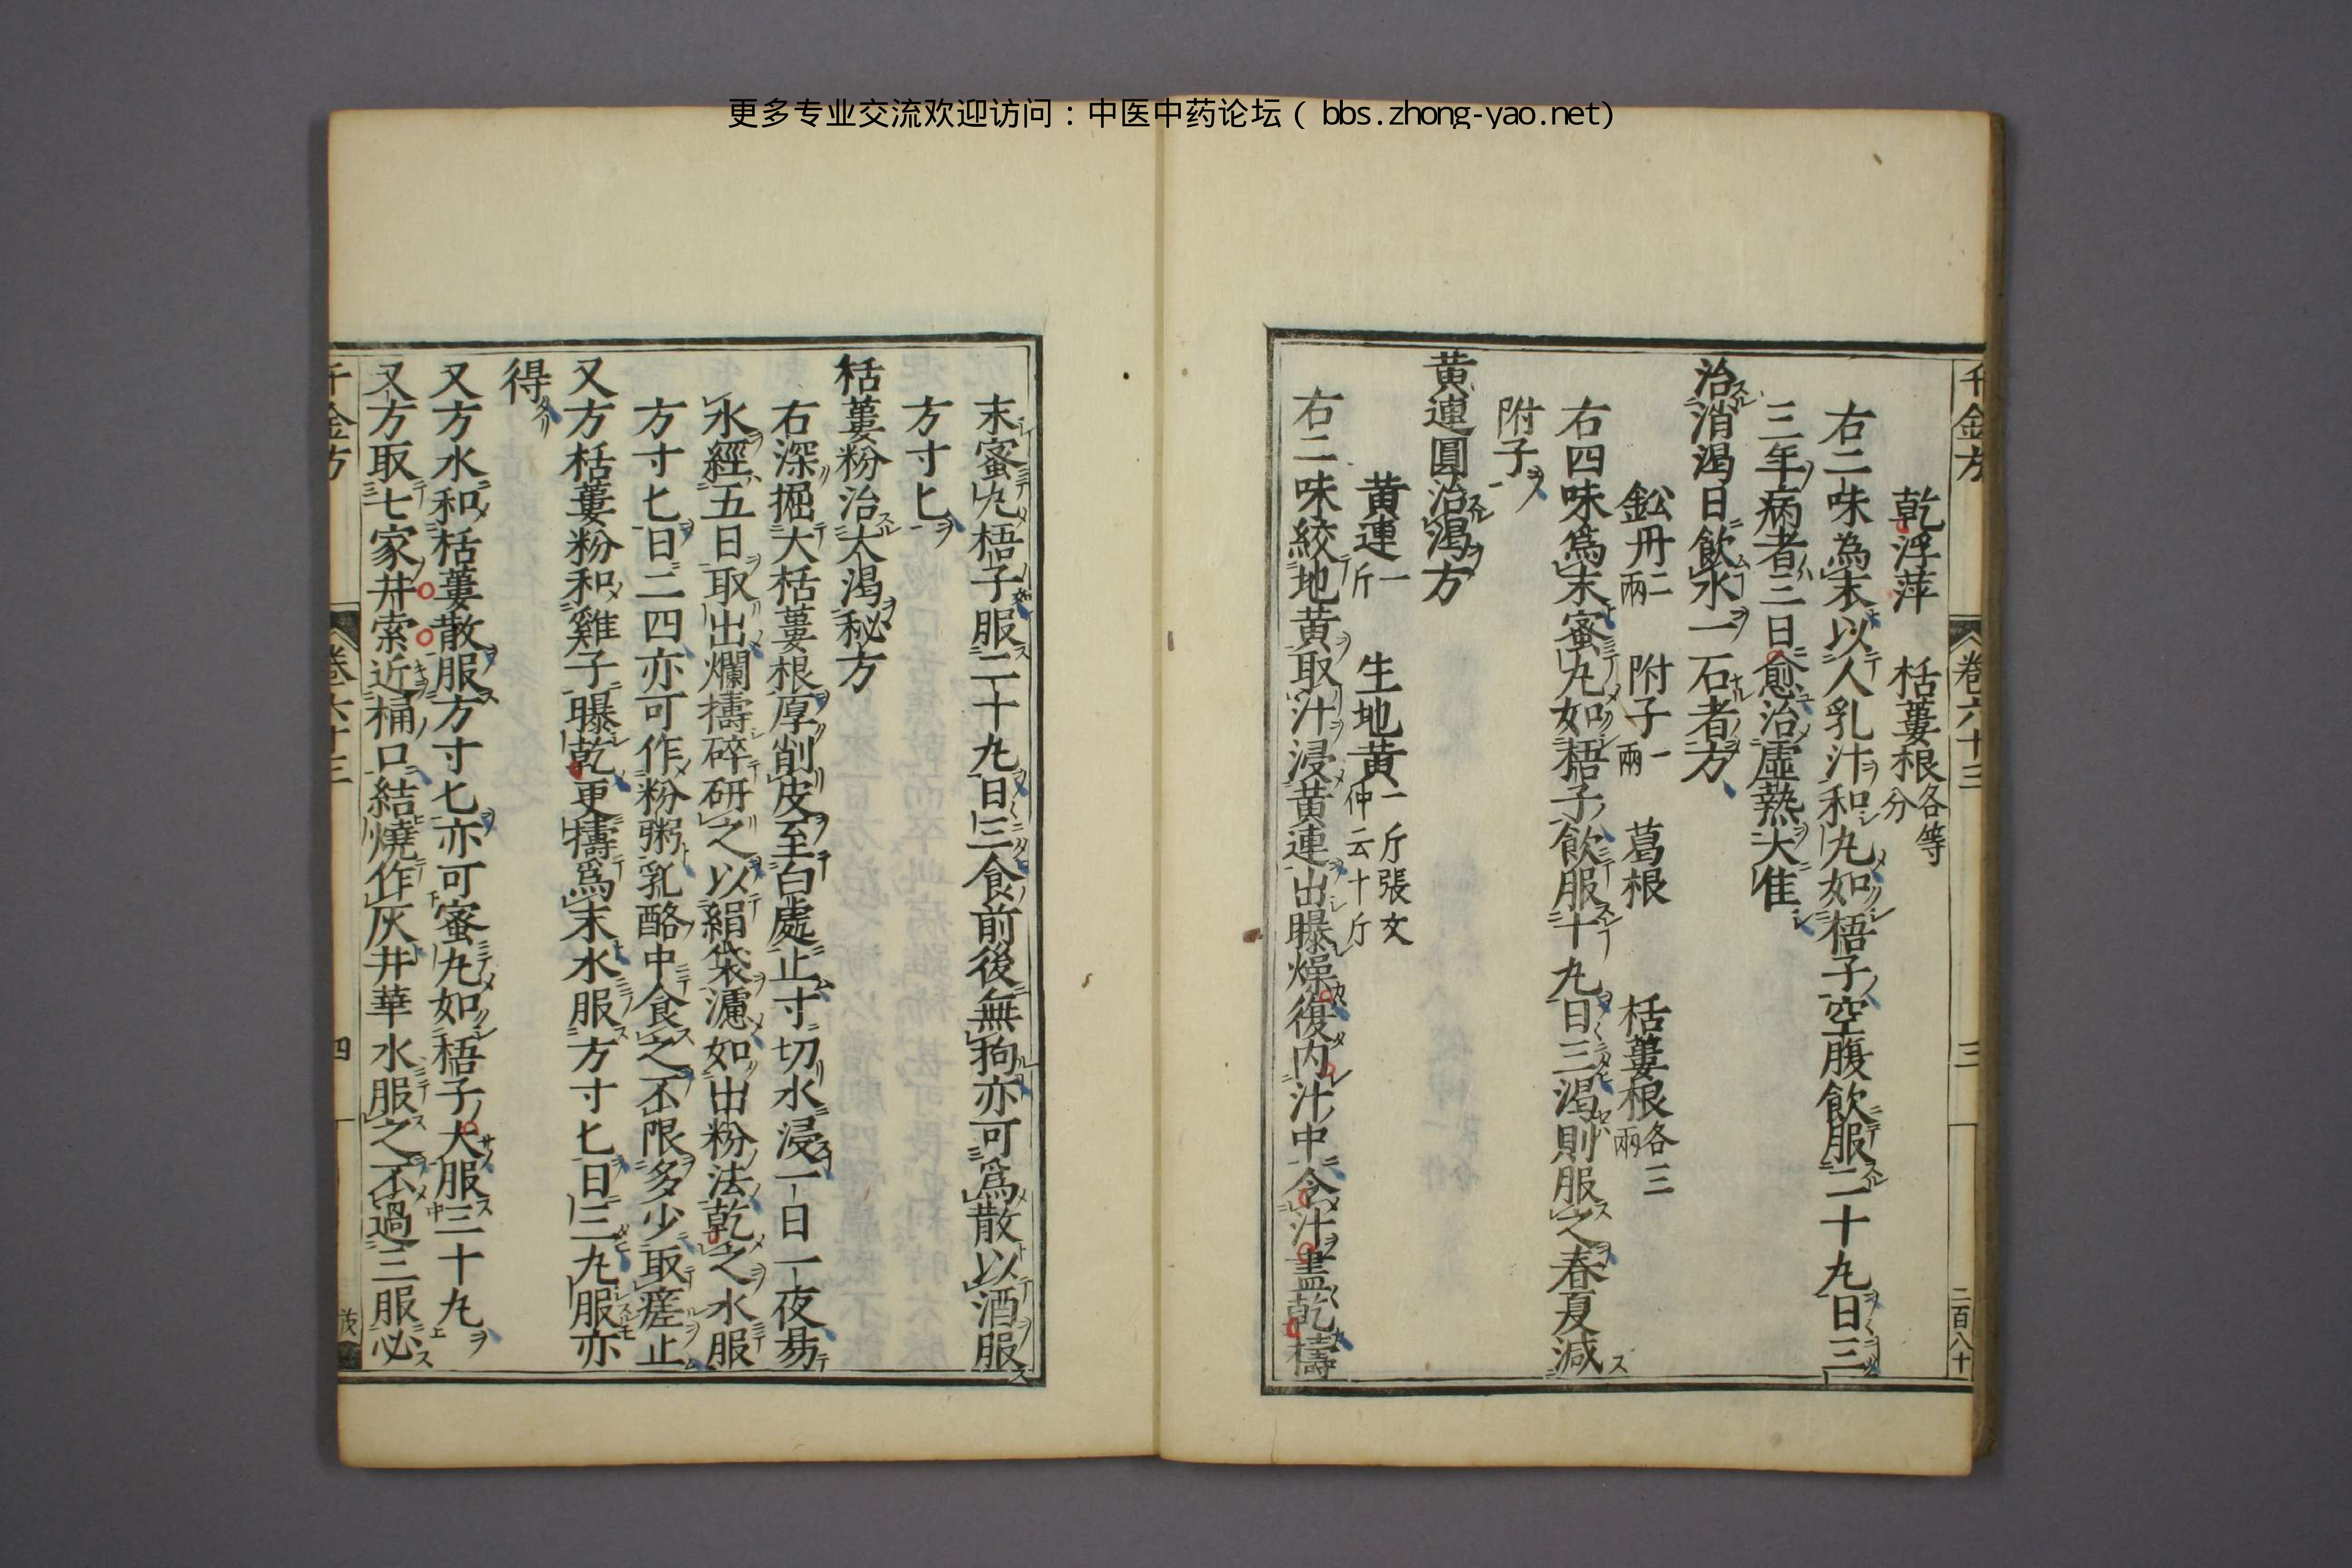 更多专业交流欢迎访问：中医中药论坛（bbs.zhong-yao.net）
千金方 卷六十三 三 二百八十
乾浮萍 栝蔞根各等分
右二味為末以人乳汁和丸如梧子空腹飲服二十丸日三
三年病者三日愈治虛熱大佳
治消渴日飲水一石者方
鈆丹二兩 附子一兩 葛根 栝蔞根各三兩
右四味爲末蜜丸如梧子飲服十丸日三渴則服之春夏減
附子
黄連圓治渴方
黄連一斤 生地黄一斤張文仲云十斤
右二味絞地黄取汁浸黄連出曝燥復內汁中令汁盡乾擣
末蜜丸梧子服二十丸日三食前後無拘亦可爲散以酒服
方寸匕
栝蔞粉治大渴秘方
右深掘大栝蔞根厚削皮至白處止寸切水浸一日一夜易
水經五日取出爛擣碎研之以絹袋濾如出粉法乾之水服
方寸匕日三四亦可作粉粥乳酪中食之不限多少取瘥止
又方栝蔞粉和雞子曝乾更擣爲末水服方寸匕日三丸服亦
得
又方水和栝蔞散服方寸匕亦可蜜丸如梧子大服三十丸
又方取七家井索近桶口結燒作灰井華水服之不過三服必
千金方 卷六十三 四